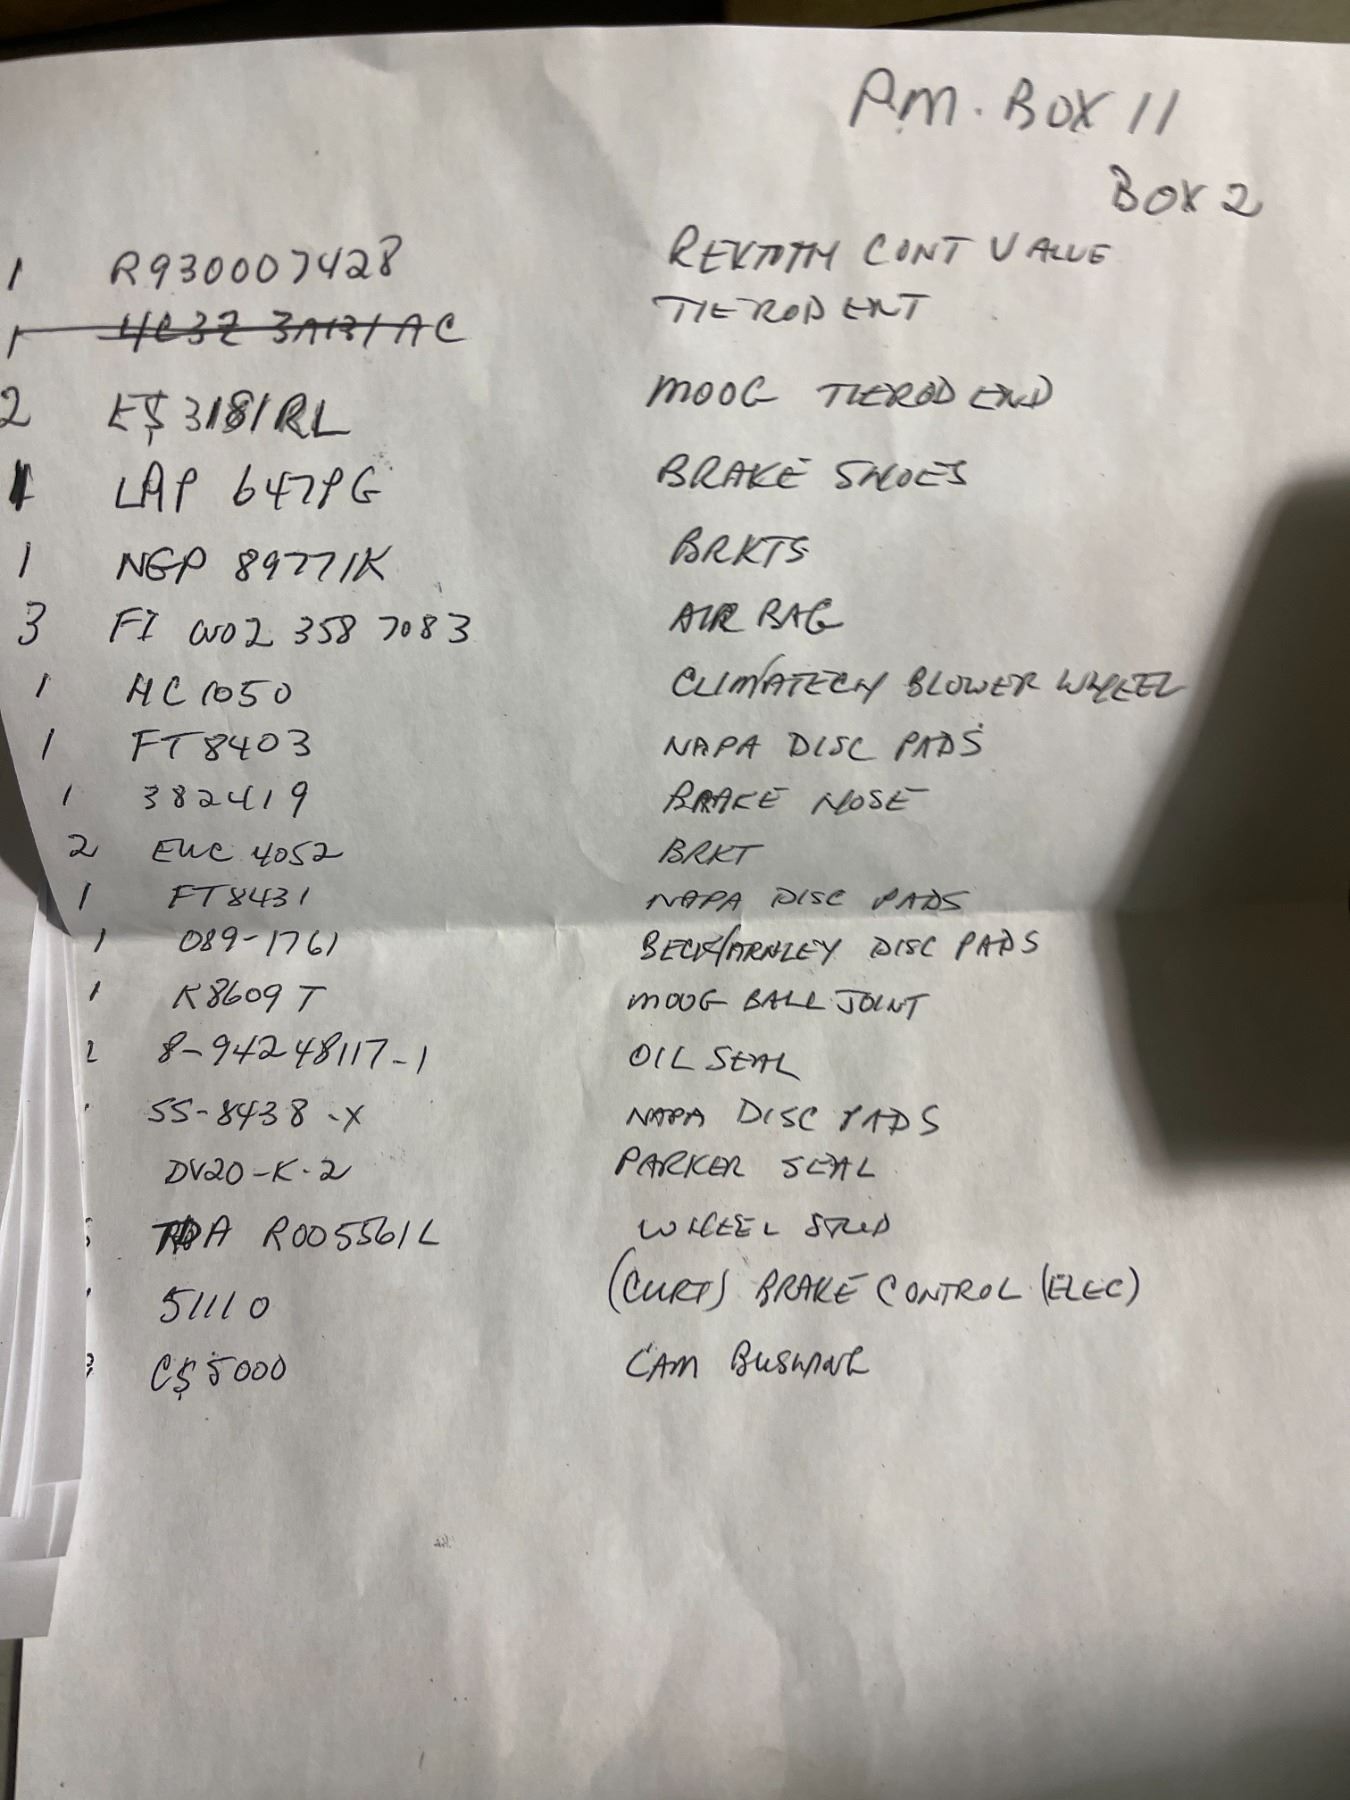 P.M. BOX 11
BOX 2
1 R930007428 REXTOTH CONT VALUE
1 4C3Z 3A131AC TIEROD ENT
2 ES3181RL MOOG TIEROD END
1 LAP 647PG BRAKE SHOES
1 NGP 89771K BRKTS
3 FI W02 358 7083 AIR BAG
1 HC1050 CLIMATECH BLOWER WHEEL
1 FT8403 NAPA DISC PADS
1 382419 BRAKE HOSE
2 EUC 4052 BRKT
1 FT8431 NAPA DISC PADS
1 089-1761 BECK/ARNLEY DISC PADS
1 K8609T MOOG BALL JOINT
2 8-94248117-1 OIL SEAL
SS-8438-X NAPA DISC PADS
DV20-K-2 PARKER SEAL
R005561L WHEEL STUD
51110 (CURT) BRAKE CONTROL (ELEC)
CS5000 CAM BUSHING